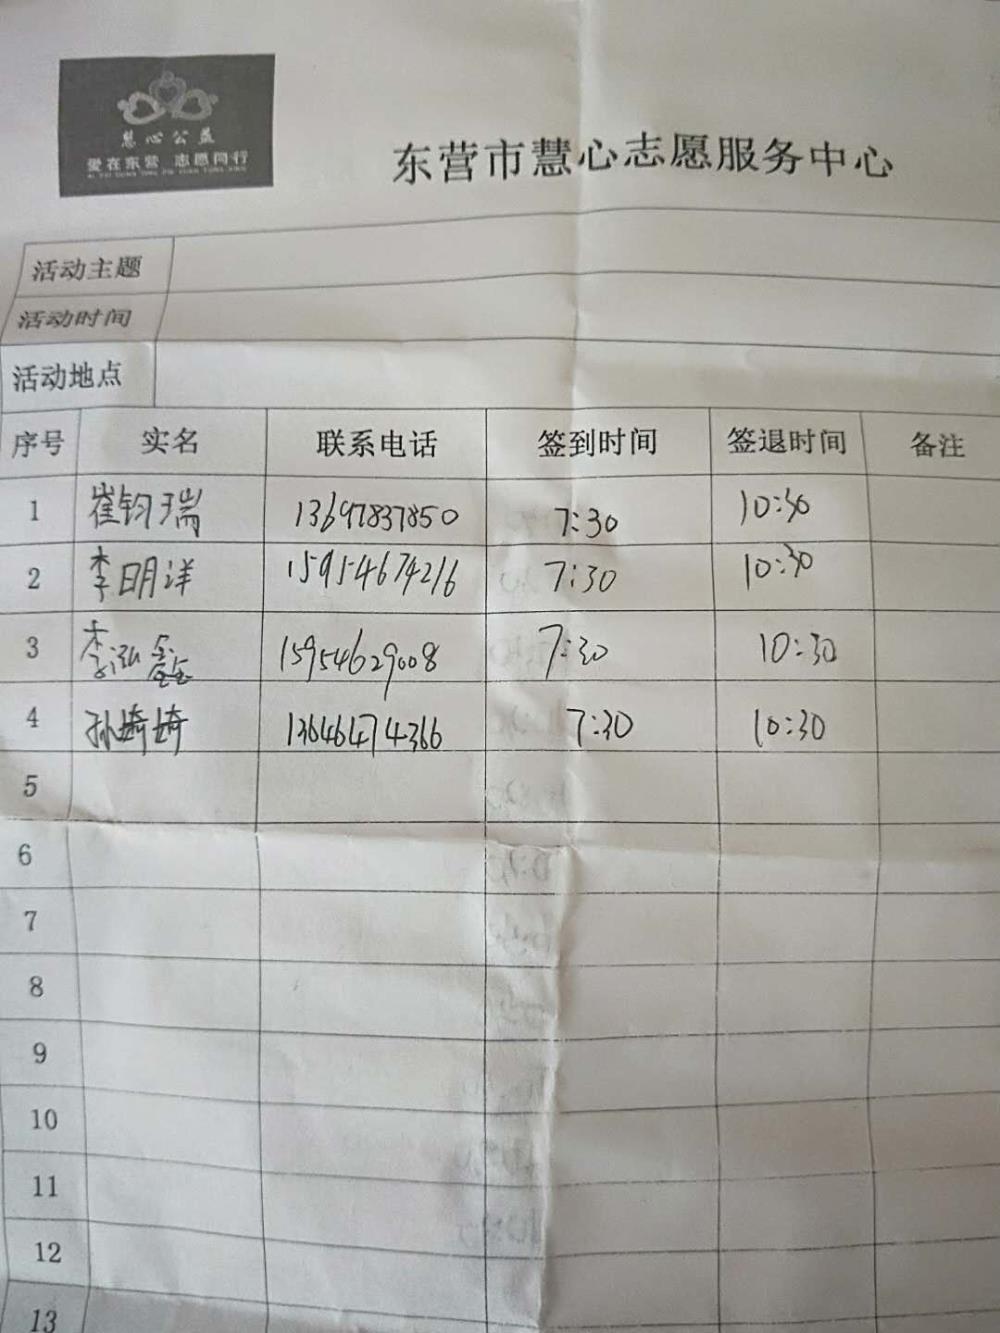 慧心公益
爱在东营 志愿同行
AI ZAI DONG YING ZHI YUAN TONG XING
东营市慧心志愿服务中心
活动主题
活动时间
活动地点
序号 实名 联系电话 签到时间 签退时间 备注
1 崔钧瑞 13697837850 7:30 10:30
2 李明洋 15954674216 7:30 10:30
3 李泓鑫 15954629008 7:30 10:30
4 孙崎崎 13646474366 7:30 10:30
5
6
7
8
9
10
11
12
13